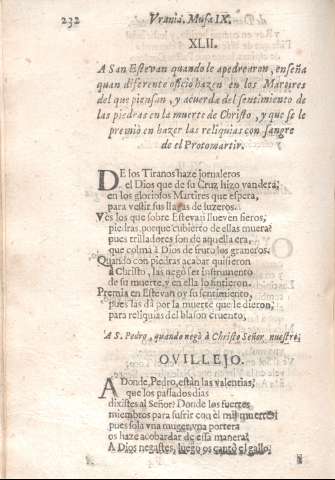 232 Vrania. Musa IX.
XLII.
A San Estevan quando le apedrearon, enseña
quan diferente oficio hazen en los Martires
del que piensan, y acuerda del sentimiento de
las piedras en la muerte de Christo, y que se le
premiò en hazer las reliquias con sangre
de el Protomartir.
DE los Tiranos haze jornaleros
el Dios que de su Cruz hizo vandera;
en los gloriosos Martires que espera,
para vestir sus llagas de luzeros.
Ves los que sobre Estevan llueven fieros,
piedras, porque cubierto de ellas muera?
pues trilladores son de aquella era,
que colma à Dios de fruto los graneros.
Quando con piedras acabar quisieron
à Christo, las negò ser instrumento
de su muerte, y en ella lo sintieron.
Premia en Estevan oy su sentimiento,
pues las dà por la muerte que le dieron,
para reliquias del blason cruento,
A S. Pedro, quando negò à Christo Señor nuestro;
OVILLEJO.
ADonde, Pedro, estàn las valentias,
que los passados dias
dixistes al Señor? Donde los fuertes
miembros para sufrir con èl mil muertes;
pues sola vna muger, vna portera
os haze acobardar de essa manera?
A Dios negastes, luego os cantò el gallo;